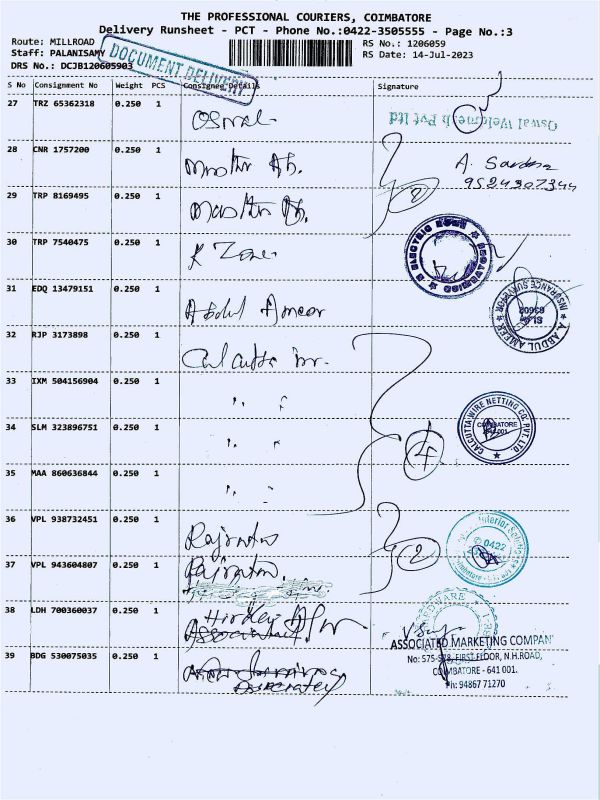 THE PROFESSIONAL COURIERS, COIMBATORE
Delivery Runsheet - PCT - Phone No.:0422-3505555 - Page No.:3
Route: MILLROAD RS No.: 1206059
Staff: PALANISAMY RS Date: 14-Jul-2023
DRS No.: DCJB120605903
DOCUMENT DELIVERY
S No Consignment No Weight PCS Consignee Details Signature
27 TRZ 65362318 0.250 1 Oswal
Oswal Weldmesh Pvt Ltd
28 CNR 1757200 0.250 1
A.
9524307344
29 TRP 8169495 0.250 1
2
30 TRP 7540475 0.250 1 K Zone
ELECTRIC
31 EDQ 13479151 0.250 1 Abdul Ameer
A. ABDUL AMEER
INSURANCE SURVEYOR
32 RJP 3173898 0.250 1 Calcutta
33 IXM 504156904 0.250 1 " "
34 SLM 323896751 0.250 1 " "
4
CALCUTTA WIRE NETTING CO. PVT. LTD.
COIMBATORE
35 MAA 860636844 0.250 1 " "
36 VPL 938732451 0.250 1 Rajratan
2
Interior
0422
37 VPL 943604807 0.250 1 Rajratan
38 LDH 700360037 0.250 1
ASSOCIATED MARKETING COMPAN
39 BDG 530075035 0.250 1
No: 575-578, FIRST FLOOR, N.H.ROAD,
COIMBATORE - 641 001.
Ph: 94867 71270